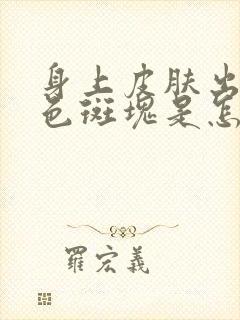 身上皮肤出
色斑块是怎
羅宏義